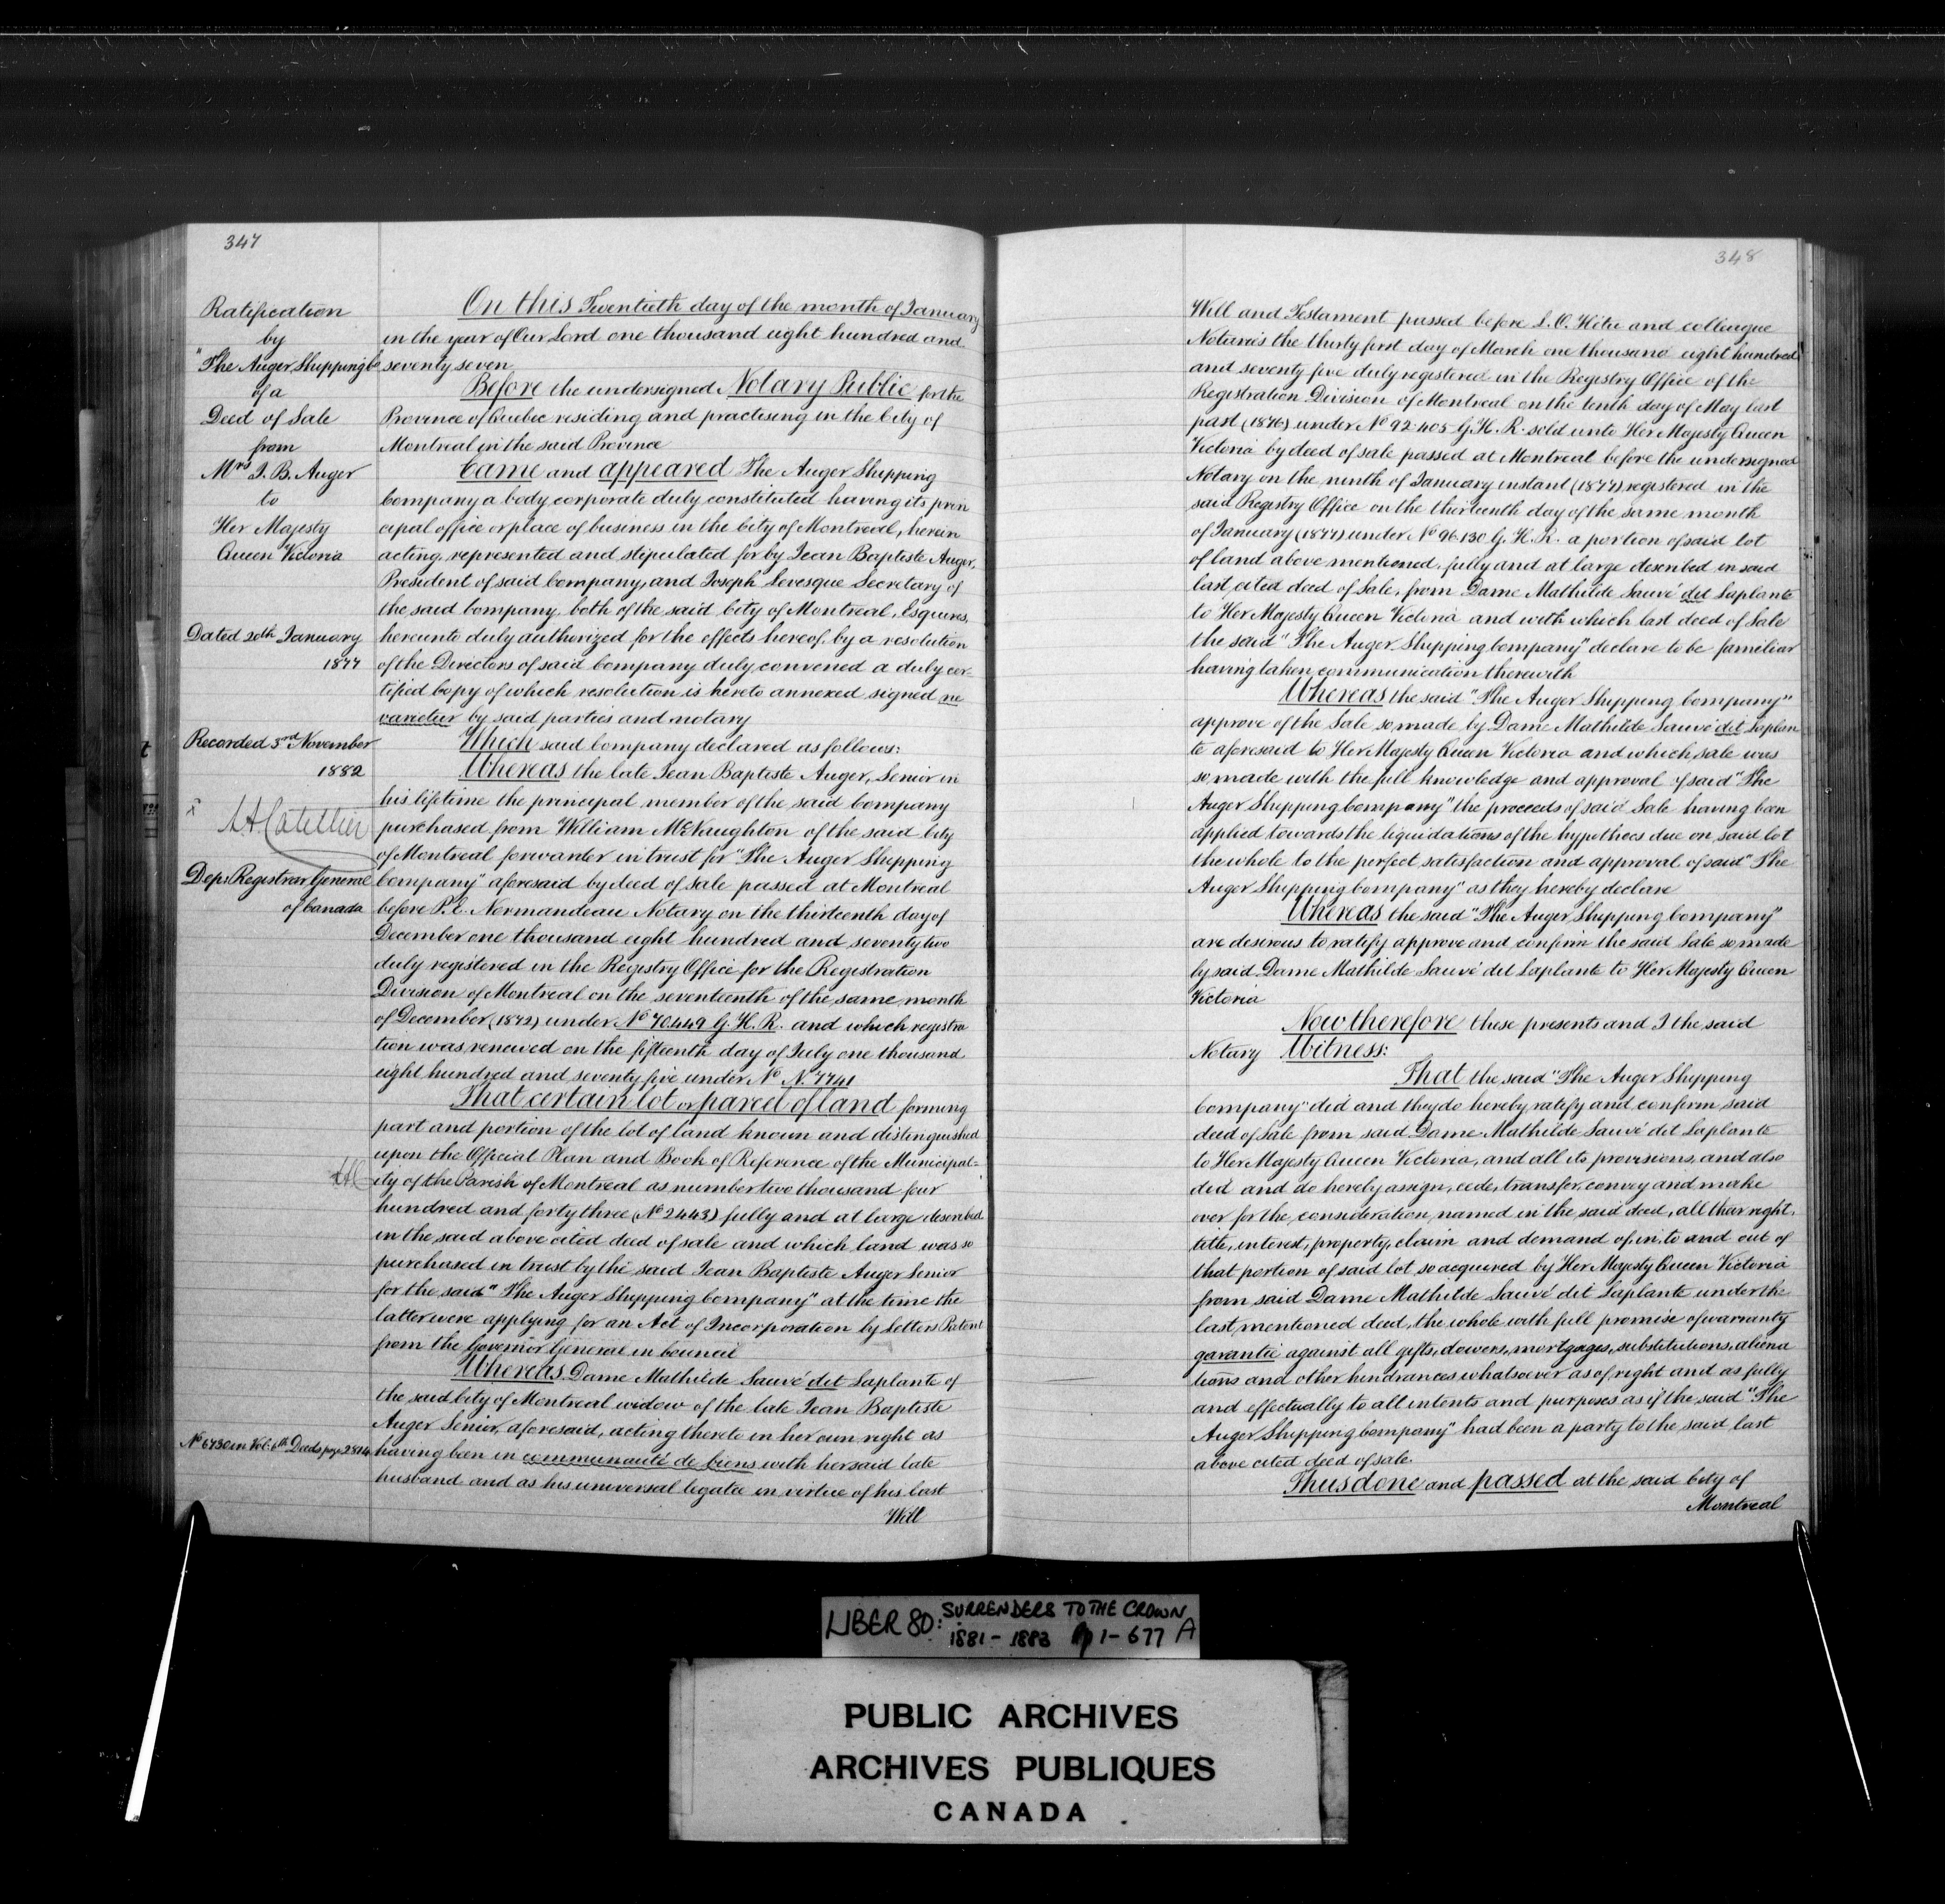 347
Ratification
by
"The Auger Shipping Co
of a
Deed of Sale
from
Mrs J. B. Auger
to
Her Majesty
Queen Victoria
Dated 20th January
1877
Recorded 3rd November
1882
Dep. Registrar General
of Canada
No 6730 in Vol. 6th Deeds page 2814
On this Twentieth day of the month of January
in the year of Our Lord one thousand eight hundred and
seventy seven
Before the undersigned Notary Public for the
Province of Quebec residing and practising in the City of
Montreal in the said Province
Came and appeared The Auger Shipping
Company a body corporate duly constituted having its prin
cipal office or place of business in the City of Montreal, herein
acting, represented and stipulated for by Jean Baptiste Auger,
President of said Company, and Joseph Levesque Secretary of
the said Company, both of the said City of Montreal, Esquires,
hereunto duly authorized for the effects hereof, by a resolution
of the Directors of said Company duly convened a duly cer-
tified Copy of which resolution is hereto annexed signed ne
varietur by said parties and notary
Which said Company declared as follows:
Whereas the late Jean Baptiste Auger, Senior in
his lifetime the principal member of the said Company
purchased from William McNaughton of the said City
of Montreal forwarder in trust for "The Auger Shipping
Company" aforesaid by deed of sale passed at Montreal
before P. E. Normandeau Notary on the thirteenth day of
December one thousand eight hundred and seventy two
duly registered in the Registry Office for the Registration
Division of Montreal on the seventeenth of the same month
of December (1872) under No 70.449 G. H. R. and which registra
tion was renewed on the fifteenth day of July one thousand
eight hundred and seventy five under No N. 7741
That certain lot or parcel of land forming
part and portion of the lot of land known and distinguished
upon the Official Plan and Book of Reference of the Municipal=
ity of the Parish of Montreal as number two thousand four
hundred and forty three (No 2443) fully and at large described
in the said above cited deed of sale and which land was so
purchased in trust by the said Jean Baptiste Auger Senior
for the said "The Auger Shipping Company" at the time the
latter were applying for an Act of Incorporation by Letters Patent
from the Governor General in Council
Whereas Dame Mathilde Sauvé dit Laplante of
the said City of Montreal widow of the late Jean Baptiste
Auger Senior, aforesaid, acting thereto in her own right as
having been in communauté de biens with her said late
husband and as his universal legatee in virtue of his last
Will
348
Will and Testament passed before L. O. Hétu and colleague
Notaries the thirty first day of March one thousand eight hundred
and seventy five duly registered in the Registry Office of the
Registration Division of Montreal on the tenth day of May last
past (1876) under No 92.405 G. H. R. sold unto Her Majesty Queen
Victoria by deed of sale passed at Montreal before the undersigned
Notary on the ninth of January instant (1877) registered in the
said Registry Office on the thirteenth day of the same month
of January (1877) under No 96.130 G. H. R. a portion of said lot
of land above mentioned, fully and at large described in said
last cited deed of Sale, from Dame Mathilde Sauvé dit Laplante
to Her Majesty Queen Victoria and with which last deed of Sale
the said "The Auger Shipping Company" declare to be familiar
having taken communication therewith
Whereas the said "The Auger Shipping Company"
approve of the Sale so made by Dame Mathilde Sauvé dit Laplan
te aforesaid to Her Majesty Queen Victoria and which sale was
so made with the full knowledge and approval of said "The
Auger Shipping Company" the proceeds of said Sale having been
applied towards the liquidations of the hypothecs due on said lot
the whole to the perfect satisfaction and approval of said "The
Auger Shipping Company" as they hereby declare
Whereas the said "The Auger Shipping Company"
are desirous to ratify approve and confirm the said Sale so made
by said Dame Mathilde Sauvé dit Laplante to Her Majesty Queen
Victoria
Now therefore these presents and I the said
Notary Witness:
That the said "The Auger Shipping
Company" did and they do hereby ratify and confirm said
deed of Sale from said Dame Mathilde Sauvé dit Laplante
to Her Majesty Queen Victoria, and all its provisions, and also
did and do hereby assign, cede, transfer, convey and make
over for the consideration named in the said deed, all their right,
title, interest, property, claim and demand of, in, to and out of
that portion of said lot so acquired by Her Majesty Queen Victoria
from said Dame Mathilde Sauvé dit Laplante under the
last mentioned deed, the whole with full promise of warranty
garantie against all gifts, dowers, mortgages, substitutions, aliena
tions and other hindrances whatsoever as of right and as fully
and effectually to all intents and purposes as if the said "The
Auger Shipping Company" had been a party to the said last
above cited deed of sale.
Thus done and passed at the said City of
Montreal
LIBER 80: SURRENDERS TO THE CROWN
1881 - 1883 pp 1-677 A
PUBLIC ARCHIVES
ARCHIVES PUBLIQUES
CANADA